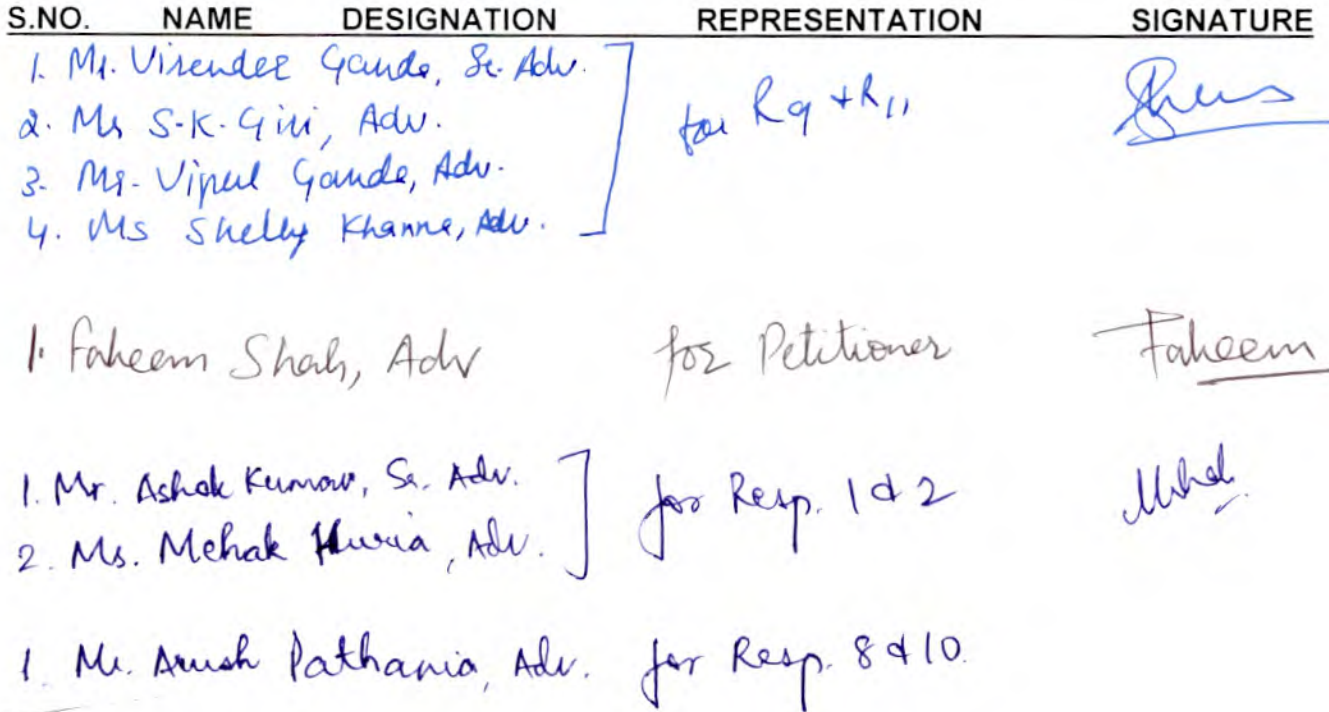 S.NO. NAME DESIGNATION REPRESENTATION SIGNATURE
1. Mr. Virender Ganda, Sr. Adv.
2. Mr S.K. Giri, Adv.
3. Mr. Vipul Ganda, Adv.
4. Ms Shelly Khanna, Adv.
for R9 + R11
1. Faheem Shah, Adv for Petitioner Faheem
1. Mr. Ashok Kumar, Sr. Adv.
2. Ms. Mehak Huria, Adv.
for Resp. 1 & 2
1 Mr. Arush Pathania, Adv. for Resp. 8 & 10.